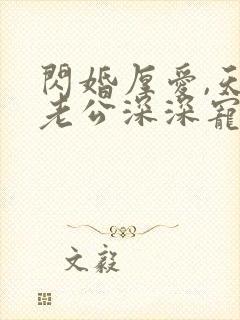 閃婚厚愛,天
老公深深寵
文毅